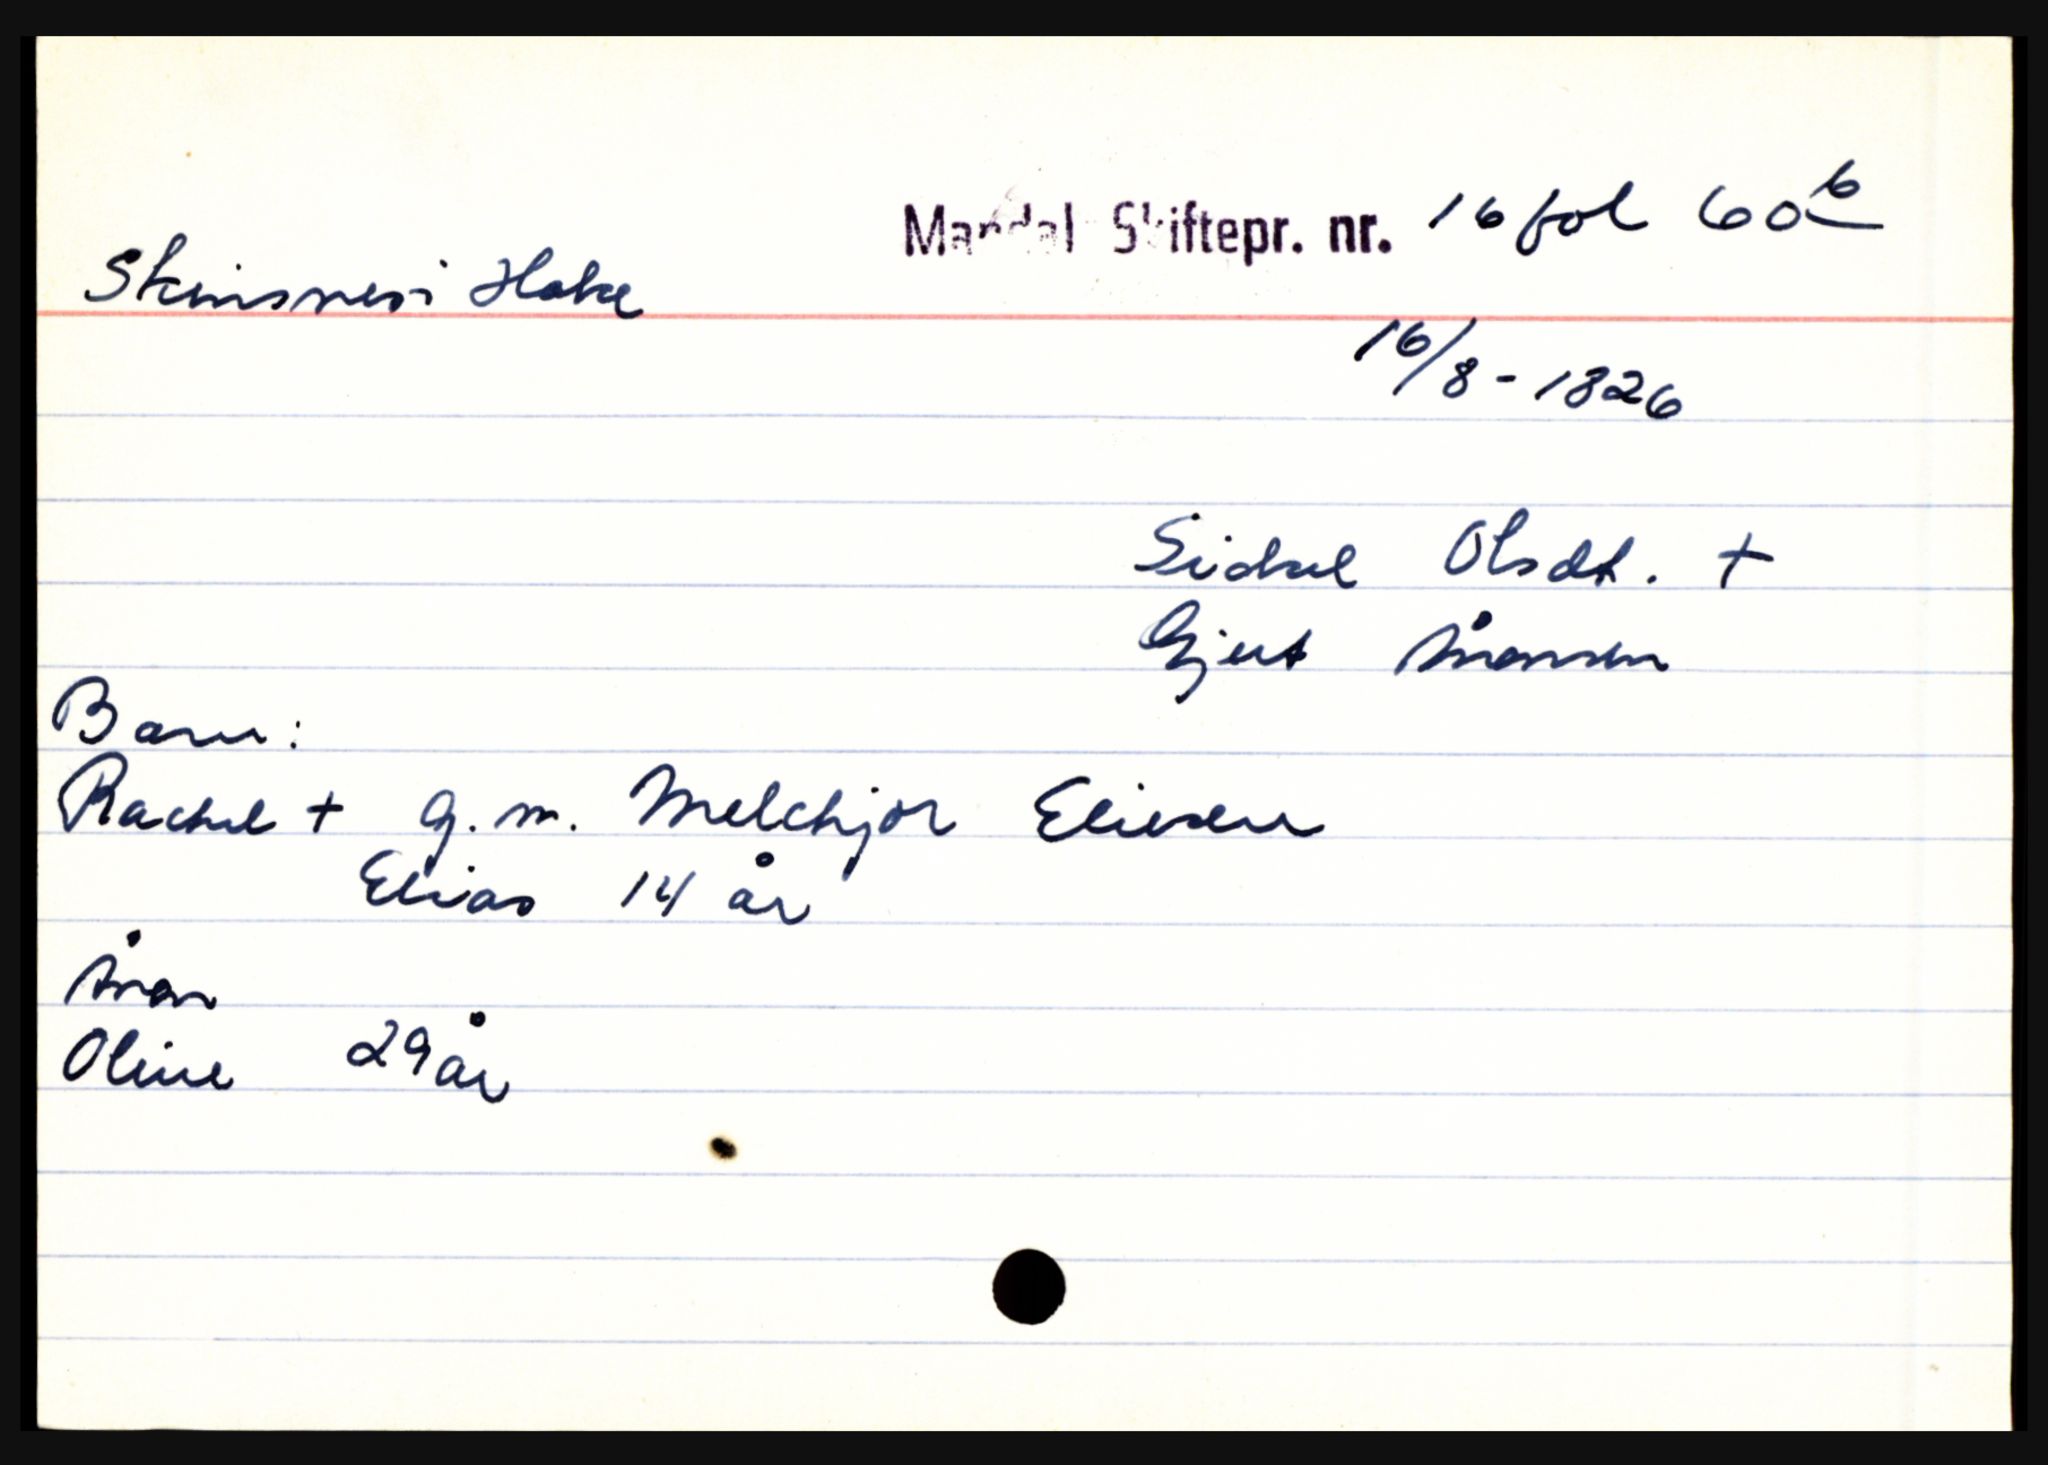 Mandal Skiftepr. nr. 16 fol 60b
Skinsnes i Hake
16/8 - 1826
Sidsel Olsdt. +
Gjert Ånonsen
Barn:
Rachel + g. m. Melchjor Eliesen
Elias 14 år
Ånon
Oline 29 år